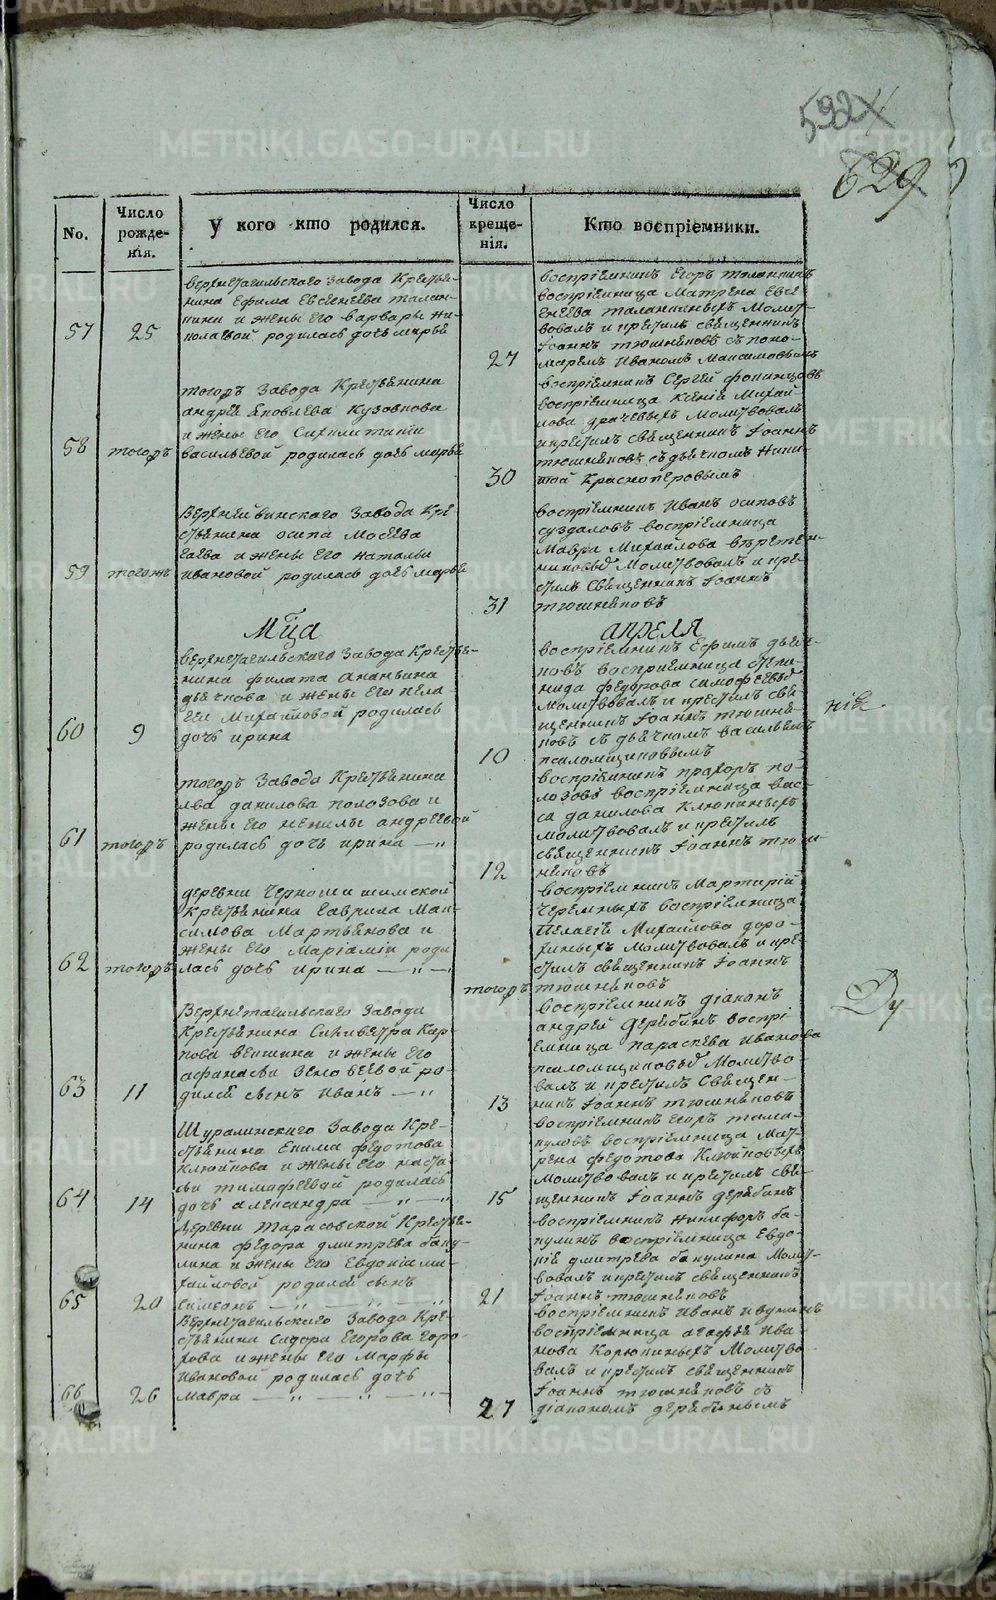 METRIKI.GASO-URAL.RU
592
629
No.
Число рожденія.
У кого кто родился.
Число крещенія.
Кто воспріемники.
верхнетагильскаго завода Крестья-
нина Ефима Евсевиева талан-
кина и жены его варвары Ни-
57 25 колаевой родилась дочь марья
воспріемникъ Егоръ таланкинъ
воспріемница Матрена Евсе-
веева таланкиныхъ Молит-
вовалъ и крестилъ священникъ
Іоаннъ тюшняковъ съ поно-
27 маремъ Иваномъ Максимовымъ
тогожъ завода Крестьянина
андрея яковлева Кузовкова
и жены его
58 тогожъ васильевой родилась дочь марья
воспріемникъ Сергей
воспріемница Ксения Михай
лова драчевыхъ Молитвовалъ
и крестилъ священникъ Іоаннъ
тюшняковъ съ дьячкомъ Ники-
30 той Красноперовымъ
Верхнейвинскаго завода Кре
стьянина осипа Мосеева
гаева и жены его натальи
59 тогожъ ивановой родилась дочь марья
воспріемникъ Иванъ осиповъ
суздаловъ воспріемница
Мавра Михайлова веретен-
никовыхъ Молитвовалъ и кре-
стилъ Священникъ Іоаннъ
31 тюшняковъ
Мца АПРЕЛЯ
верхнетагильскаго завода Крестья-
нина филата Ананьина
дьячкова и жены его пела-
геи Михайловой родилась
60 9 дочь ирина
воспріемникъ Ефимъ дьяч-
ковъ воспріемница степа-
нида федорова
молитвовалъ и крестилъ свя-
щенникъ Іоаннъ тюшня-
ковъ съ дьячкомъ васильемъ
10 псаломщиковымъ
тогожъ завода Крестьянина
льва данилова полозова и
жены его ненилы андреевой
61 тогожъ родилась дочь ирина — „
воспріемникъ прохоръ по-
лозовъ воспріемница вас-
са данилова Клюкиныхъ
молитвовалъ и крестилъ
священникъ Іоаннъ тюш-
12 няковъ
деревни Черношишимской
Крестьянина гаврила Мак-
симова Мартьянова и
жены его Маріамны роди
62 тогожъ лась дочь ирина — „ —
воспріемникъ Мартирій
Черемныхъ воспріемница
Пелагея Михайлова доро-
хиныхъ молитвовалъ и кре-
стилъ священникъ Іоаннъ
тогожъ тюшняковъ
Верхнетагильскаго завода
Крестьянина Силивестра Кар-
пова векшина и жены его
афанасьи Зеновеевой ро-
63 11 дился сынъ Иванъ — „
воспріемникъ діаконъ
андрей Дерябинъ воспрі-
емница параскева Иванова
псаломщиковыхъ Молитво
валъ и крестилъ Священ-
13 никъ Іоаннъ тюшняковъ
Шуралинскаго завода Кре-
стьянина Екима федотова
Клюйкова и жены его наста-
сьи тимофеевой родилась
64 14 дочь александра — „ — „
воспріемникъ Егоръ тала-
нуловъ воспріемница Мат-
рена федотова Клюйковыхъ
Молитвовалъ и крестилъ свя-
15 щенникъ Іоаннъ дерябинъ
деревни тарасовской Крестья-
нина федора дмитрева баку-
лина и жены его Евдокіи ми-
хайловой родился сынъ
65 20 Симеонъ — „ — „ — „
воспріемникъ никифоръ ба-
кулинъ воспріемница Евдо-
кія дмитрева бакулина Молит-
вовалъ и крестилъ священникъ
21 Іоаннъ тюшняковъ
Верхнетагильскаго завода Кре-
стьянина Сидора Егорова горо-
хова и жены его Марфы
Ивановой родилась дочь
66 26 мавра — „ — „ — „
воспріемникъ Иванъ
воспріемница агафья Ива-
нова Корюкиныхъ Молитво-
валъ и крестилъ священникъ
Іоаннъ тюшняковъ съ
27 діакономъ дерябинымъ
Ду